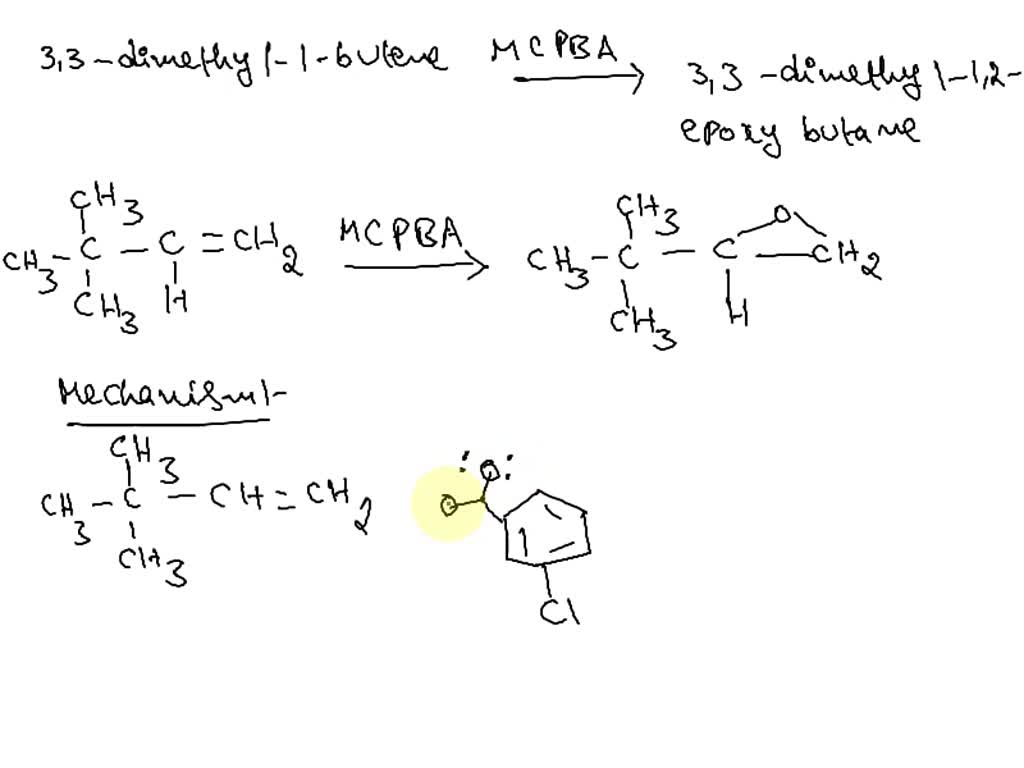 3,3-dimethyl-1-butene MCPBA 3,3-dimethyl-1,2-
epoxy butane
CH3 CH3
CH3-C-C=CH2 MCPBA CH3-C-C-CH2 O
CH3 H CH3 H
Mechanism:-
CH3
CH3-C-CH=CH2 O :O:
CH3
Cl